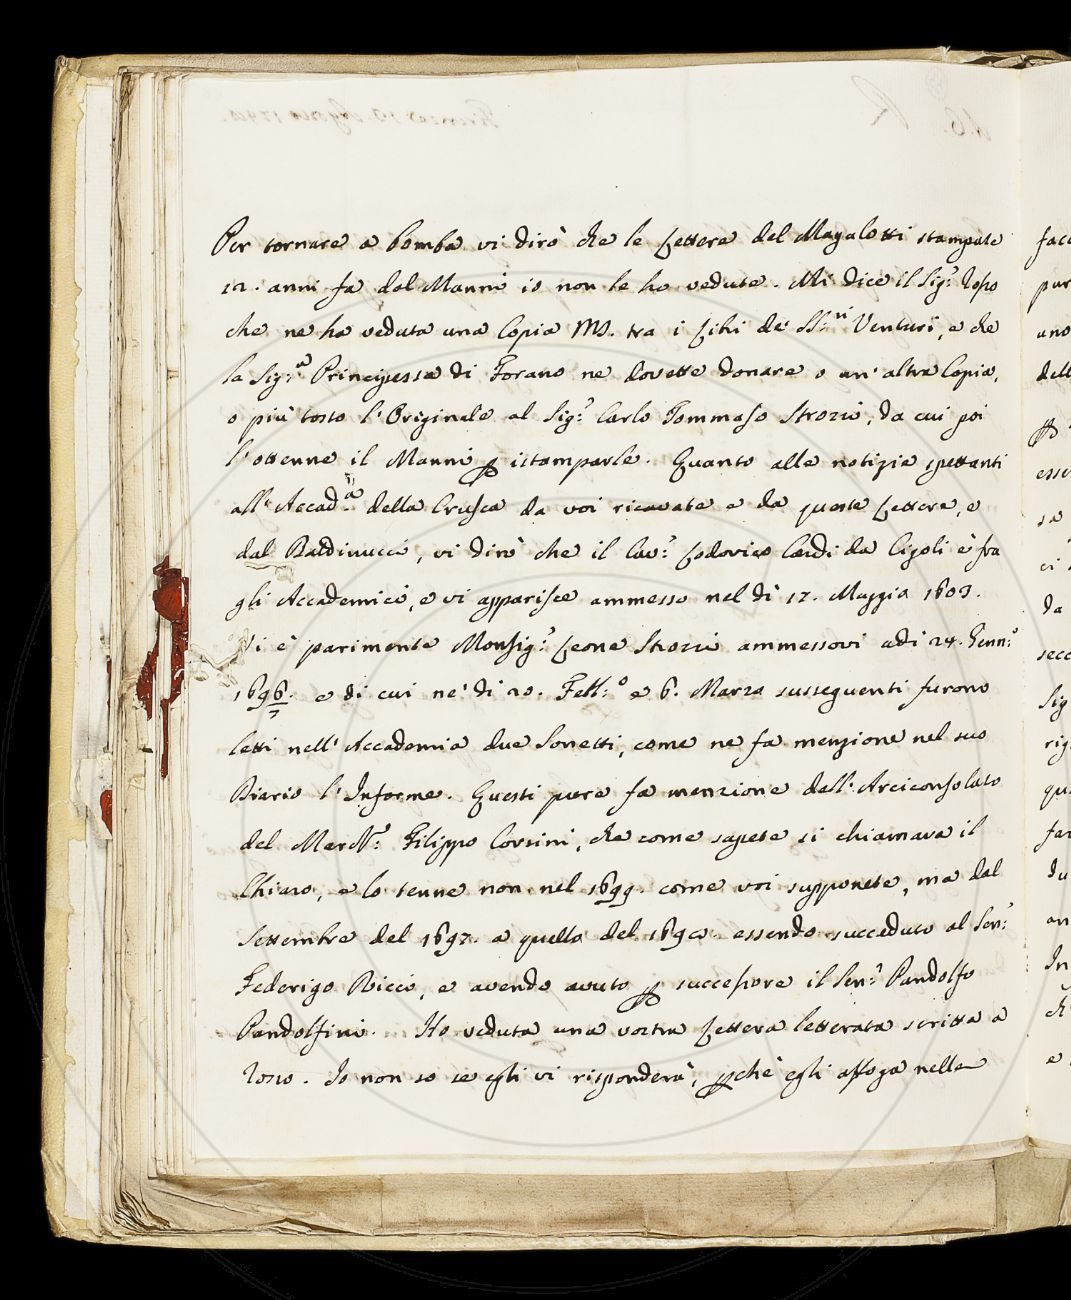 Per tornare a bomba vi dirò che le Lettere del Magalotti stampate
12. anni fa dal Manni io non le ho vedute. Mi dice il Sig.r
che ne ha veduta una Copia MS. tra i Libri de' SS.ri Venturi, e che
la Sig.ra Principessa di Forano ne dovette donare o un' altra Copia,
o più tosto l'Originale al Sig.r Carlo Tommaso Strozzi, da cui poi
l'ottenne il Manni p istamparle. Quanto alle notizie spettanti
all'Accad.a della Crusca da voi ricavate e da queste Lettere, e
dal Baldinucci, vi dirò che il Cav.r Lodovico Cardi da Cigoli è fra
gli Accademici, e vi apparisce ammesso nel dì 17. Maggio 1603.
Vi è parimente Monsig.r Leone Strozzi ammessovi adi 24. Genn.o
1696/7. e di cui ne' dì 20. Febb.o e 6. Marzo susseguenti furono
letti nell'Accademia due Sonetti, come ne fa menzione nel suo
Diario l'Informe. Questi pure fa menzione dell'Arciconsolato
del March.e Filippo Corsini, che come sapete si chiamava il
Chiaro, e lo tenne non nel 1699. come voi supponete, ma dal
Settembre del 1697. a quello del 1698. essendo succeduto al Sen.r
Federigo Ricci, e avendo avuto p successore il Sen.r Pandolfo
Pandolfini. Ho veduta una vostra Lettera letterata scritta a
Io non so se egli vi risponderà, pchè egli affoga nelle